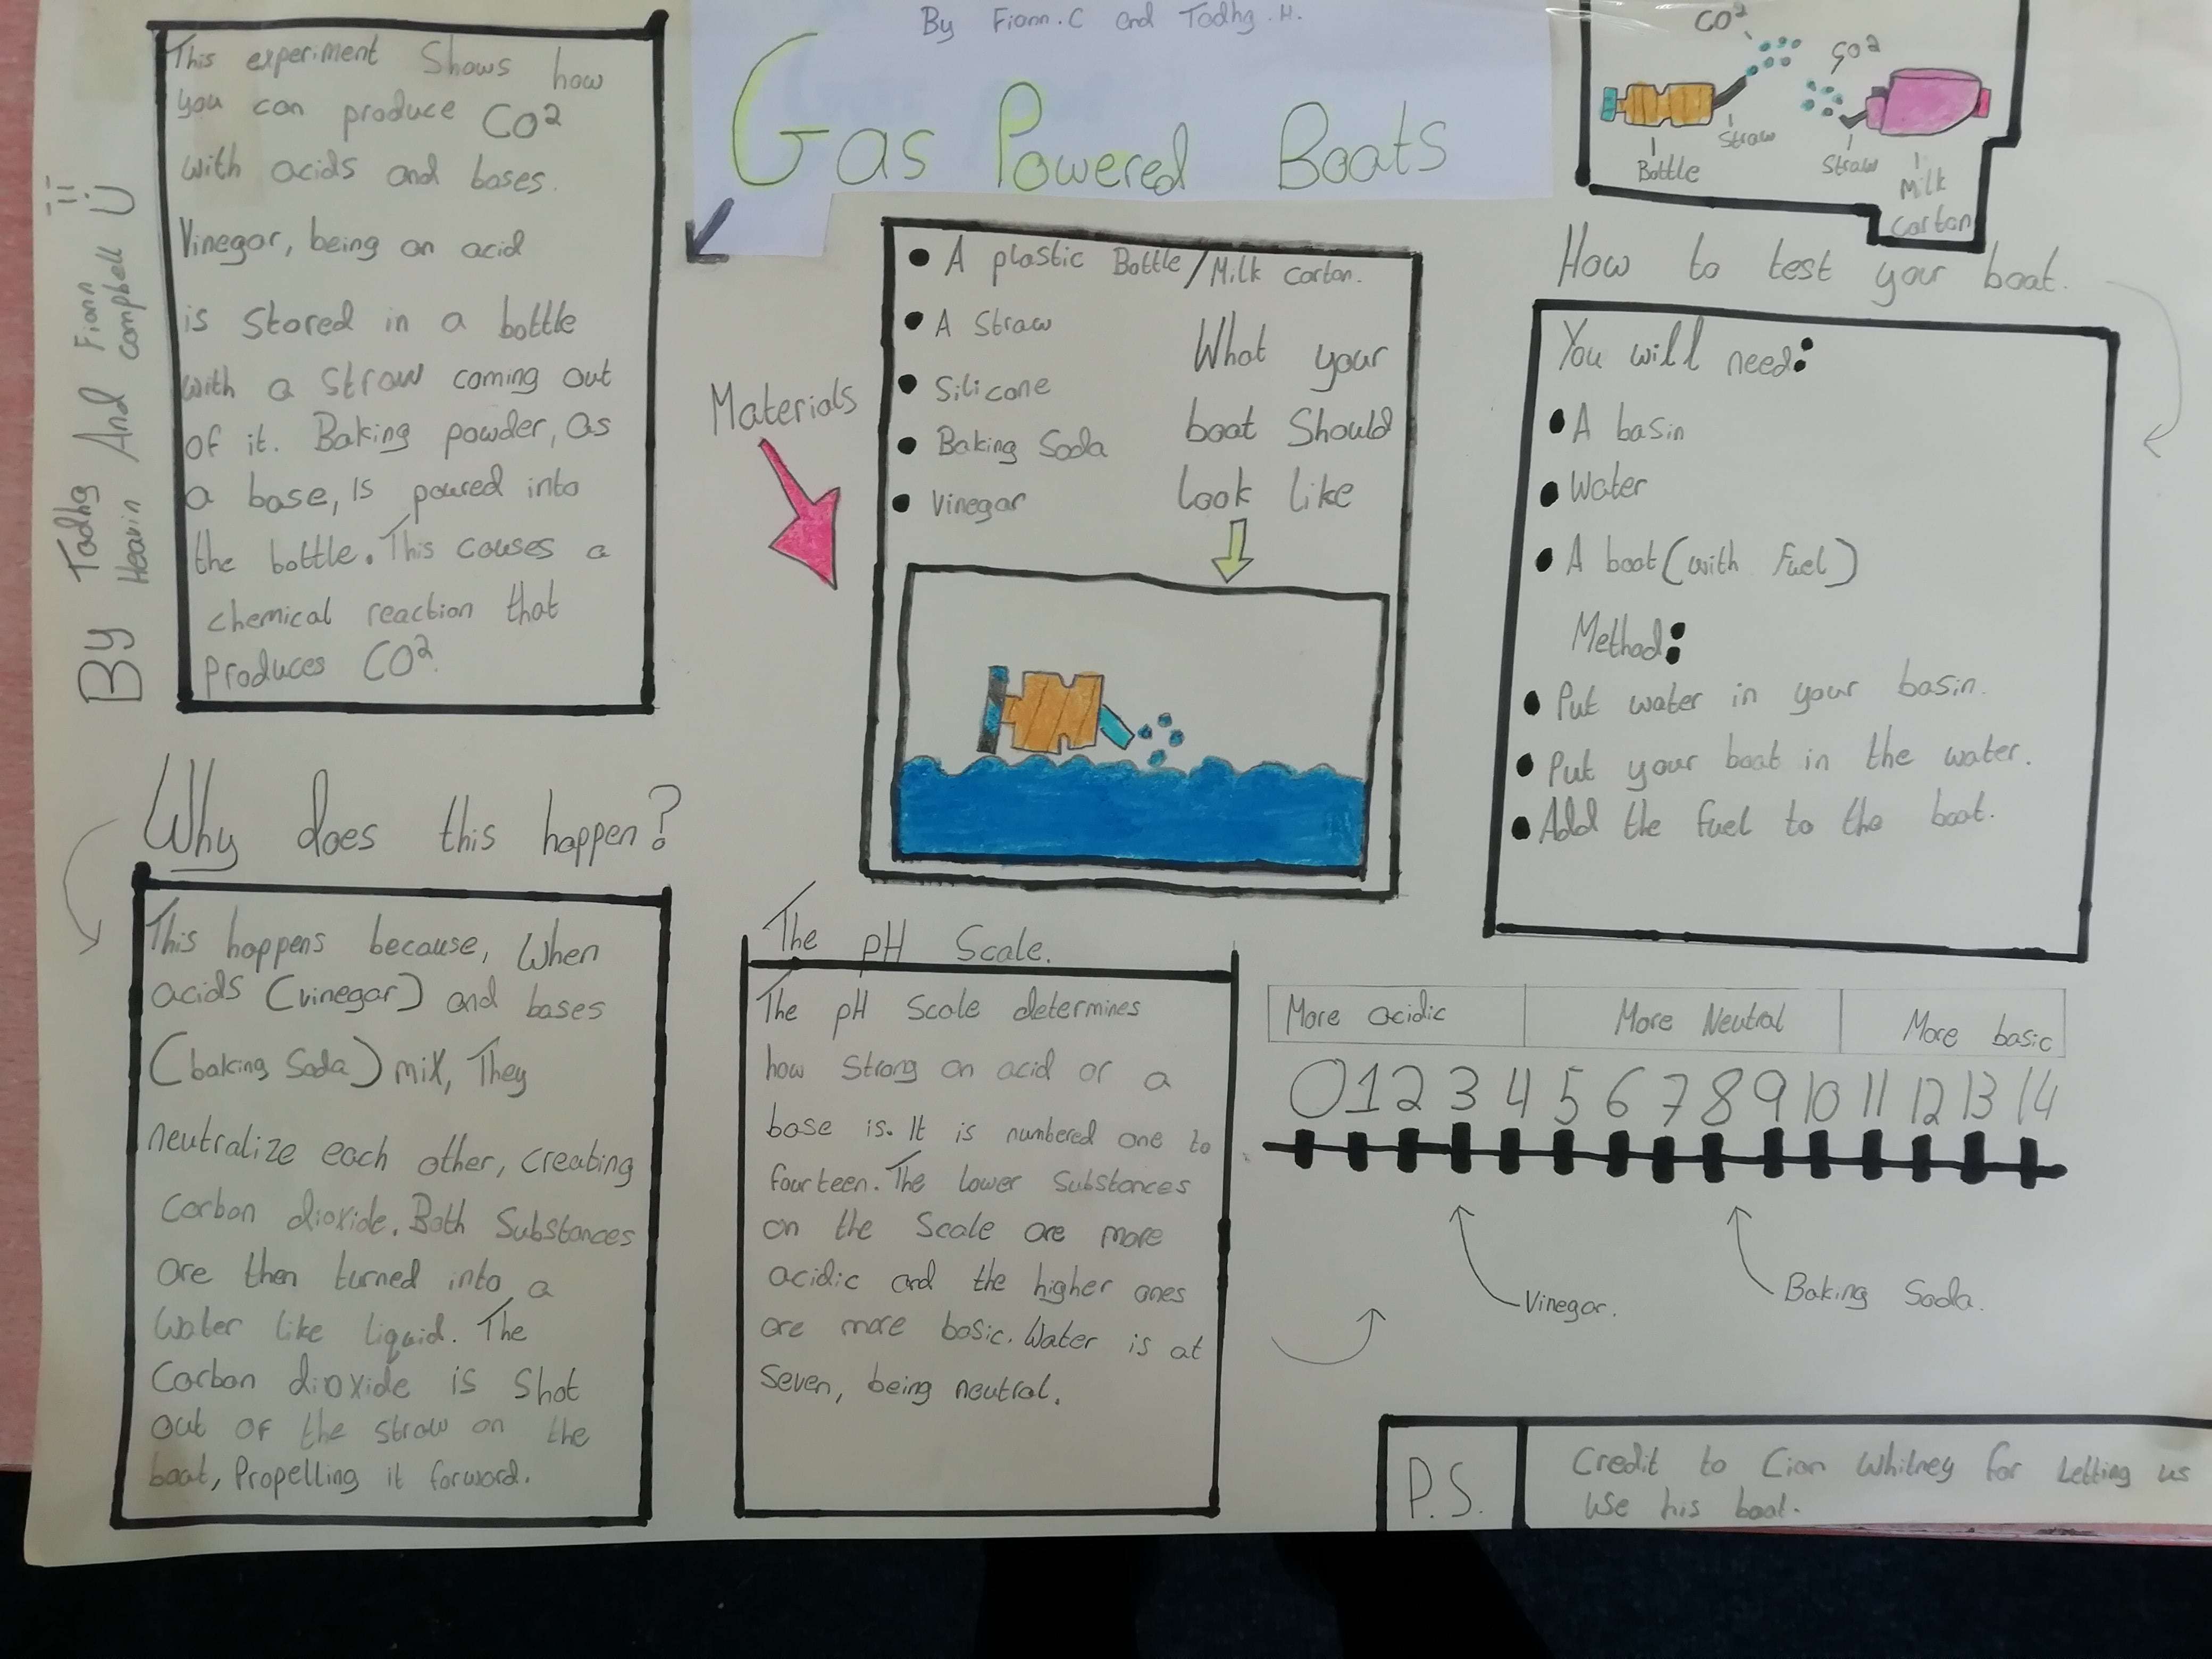 By Fionn.C and Tadhg.H.
Gas Powered Boats
By Tadhg Heavin And Fionn Campbell
This experiment Shows how
you can produce CO²
with acids and bases.
Vinegar, being an acid
is Stored in a bottle
with a Straw coming out
of it. Baking powder, as
a base, is poured into
the bottle. This causes a
chemical reaction that
produces CO².
Why does this happen?
This happens because, When
acids (vinegar) and bases
(baking Soda) mix, They
neutralize each other, creating
Carbon dioxide. Both Substances
are then turned into a
Water like liquid. The
Carbon dioxide is Shot
out of the straw on the
boat, Propelling it forward.
Materials
A plastic Bottle/Milk carton.
A Straw
Silicone
Baking Soda
Vinegar
What your
boat Should
Look like
The pH Scale.
The pH Scale determines
how Strong an acid or a
base is. It is numbered one to
fourteen. The Lower Substances
on the Scale are more
acidic and the higher ones
are more basic. Water is at
Seven, being neutral.
CO²
CO²
Straw
Bottle
Straw
Milk
Carton
How to test your boat.
You will need:
A basin
Water
A boat (with Fuel)
Method:
Put water in your basin.
Put your boat in the water.
Add the Fuel to the boat.
More acidic More Neutral More basic
0 1 2 3 4 5 6 7 8 9 10 11 12 13 14
Vinegar.
Baking Soda.
P.S.
Credit to Cian Whitney for Letting us
Use his boat.